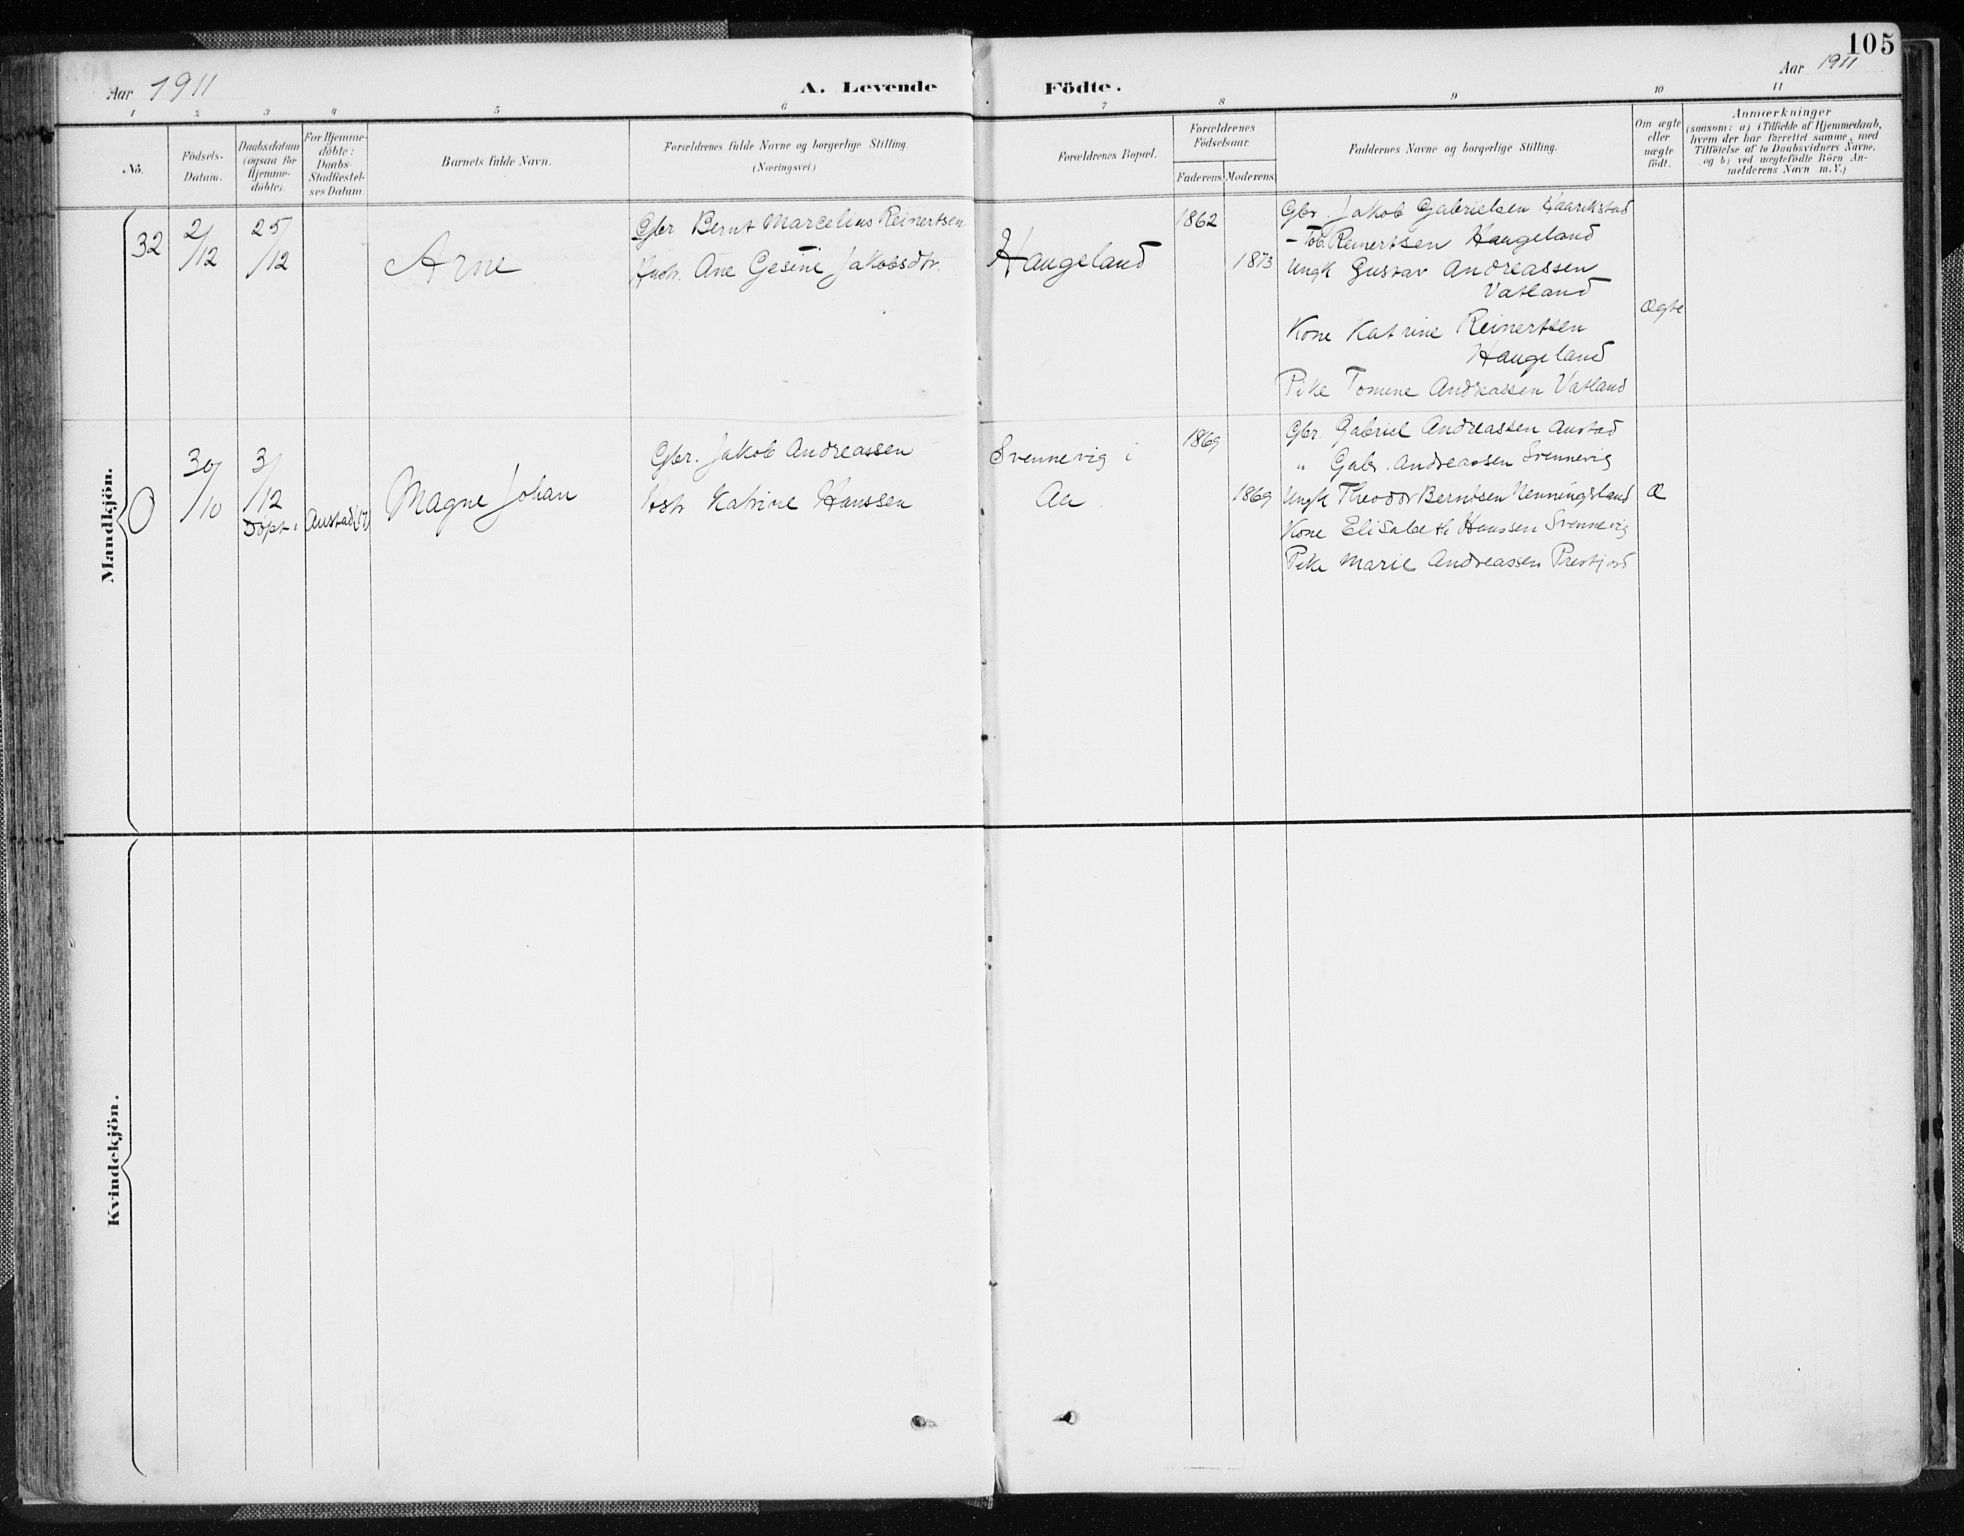 105
Aar 1911
A. Levende Födte.
Aar 1911
1 2 3 4 5 6 7 8 9 10 11
No.
Födsels-
Datum.
Daabsdatum
(ogsaa for
Hjemme-
döbte).
For Hjemme-
döbte:
Daabs-
Stadfæstel-
ses Datum.
Barnets fulde Navn.
Forældrenes fulde Navne og borgerlige Stilling.
(Næringsvei.)
Forældrenes Bopæl.
Forældrenes
Födselsaar.
Faderens. Moderens.
Faddernes Navne og borgerlige Stilling.
Om ægte
eller
uægte
födt.
Anmærkninger
(saasom: a) i Tilfælde af Hjemmedaab,
hvem der har forrettet samme, med
Tilföielse af to Daabsvidners Navne,
og b) ved uægtefödte Börn An-
melderens Navn m.V.)
Mandkjön.
32
2/12
25/12
Arne
Gbr Bernt Marcelius Reinertsen
Hustr. Ane Gesine Jakobsdtr.
Haugeland
1862
1873
Gbr. Jakob Gabrielsen Haarikstad
- Tob. Reinertsen Haugeland
Ungk Gustav Andreassen
Vatland
Kone Katrine Reinertsen
Haugeland
Pike Tomine Andreassen Vatland
Ægte
0
30/10
3/12
Døpt i Austad (17)
Magne Johan
Gbr. Jakob Andreassen
Hstr Katrine Hanssen
Svennevig i
Aa
1869
1869
Gbr. Gabriel Andreassen Austad
" Gabr. Andreassen Svennevig
Ungk Theodor Berntsen Henningsland
Kone Elisabeth Hanssen Svennevig
Pike Marie Andreassen Prestjord
Æ
Kvindekjön.